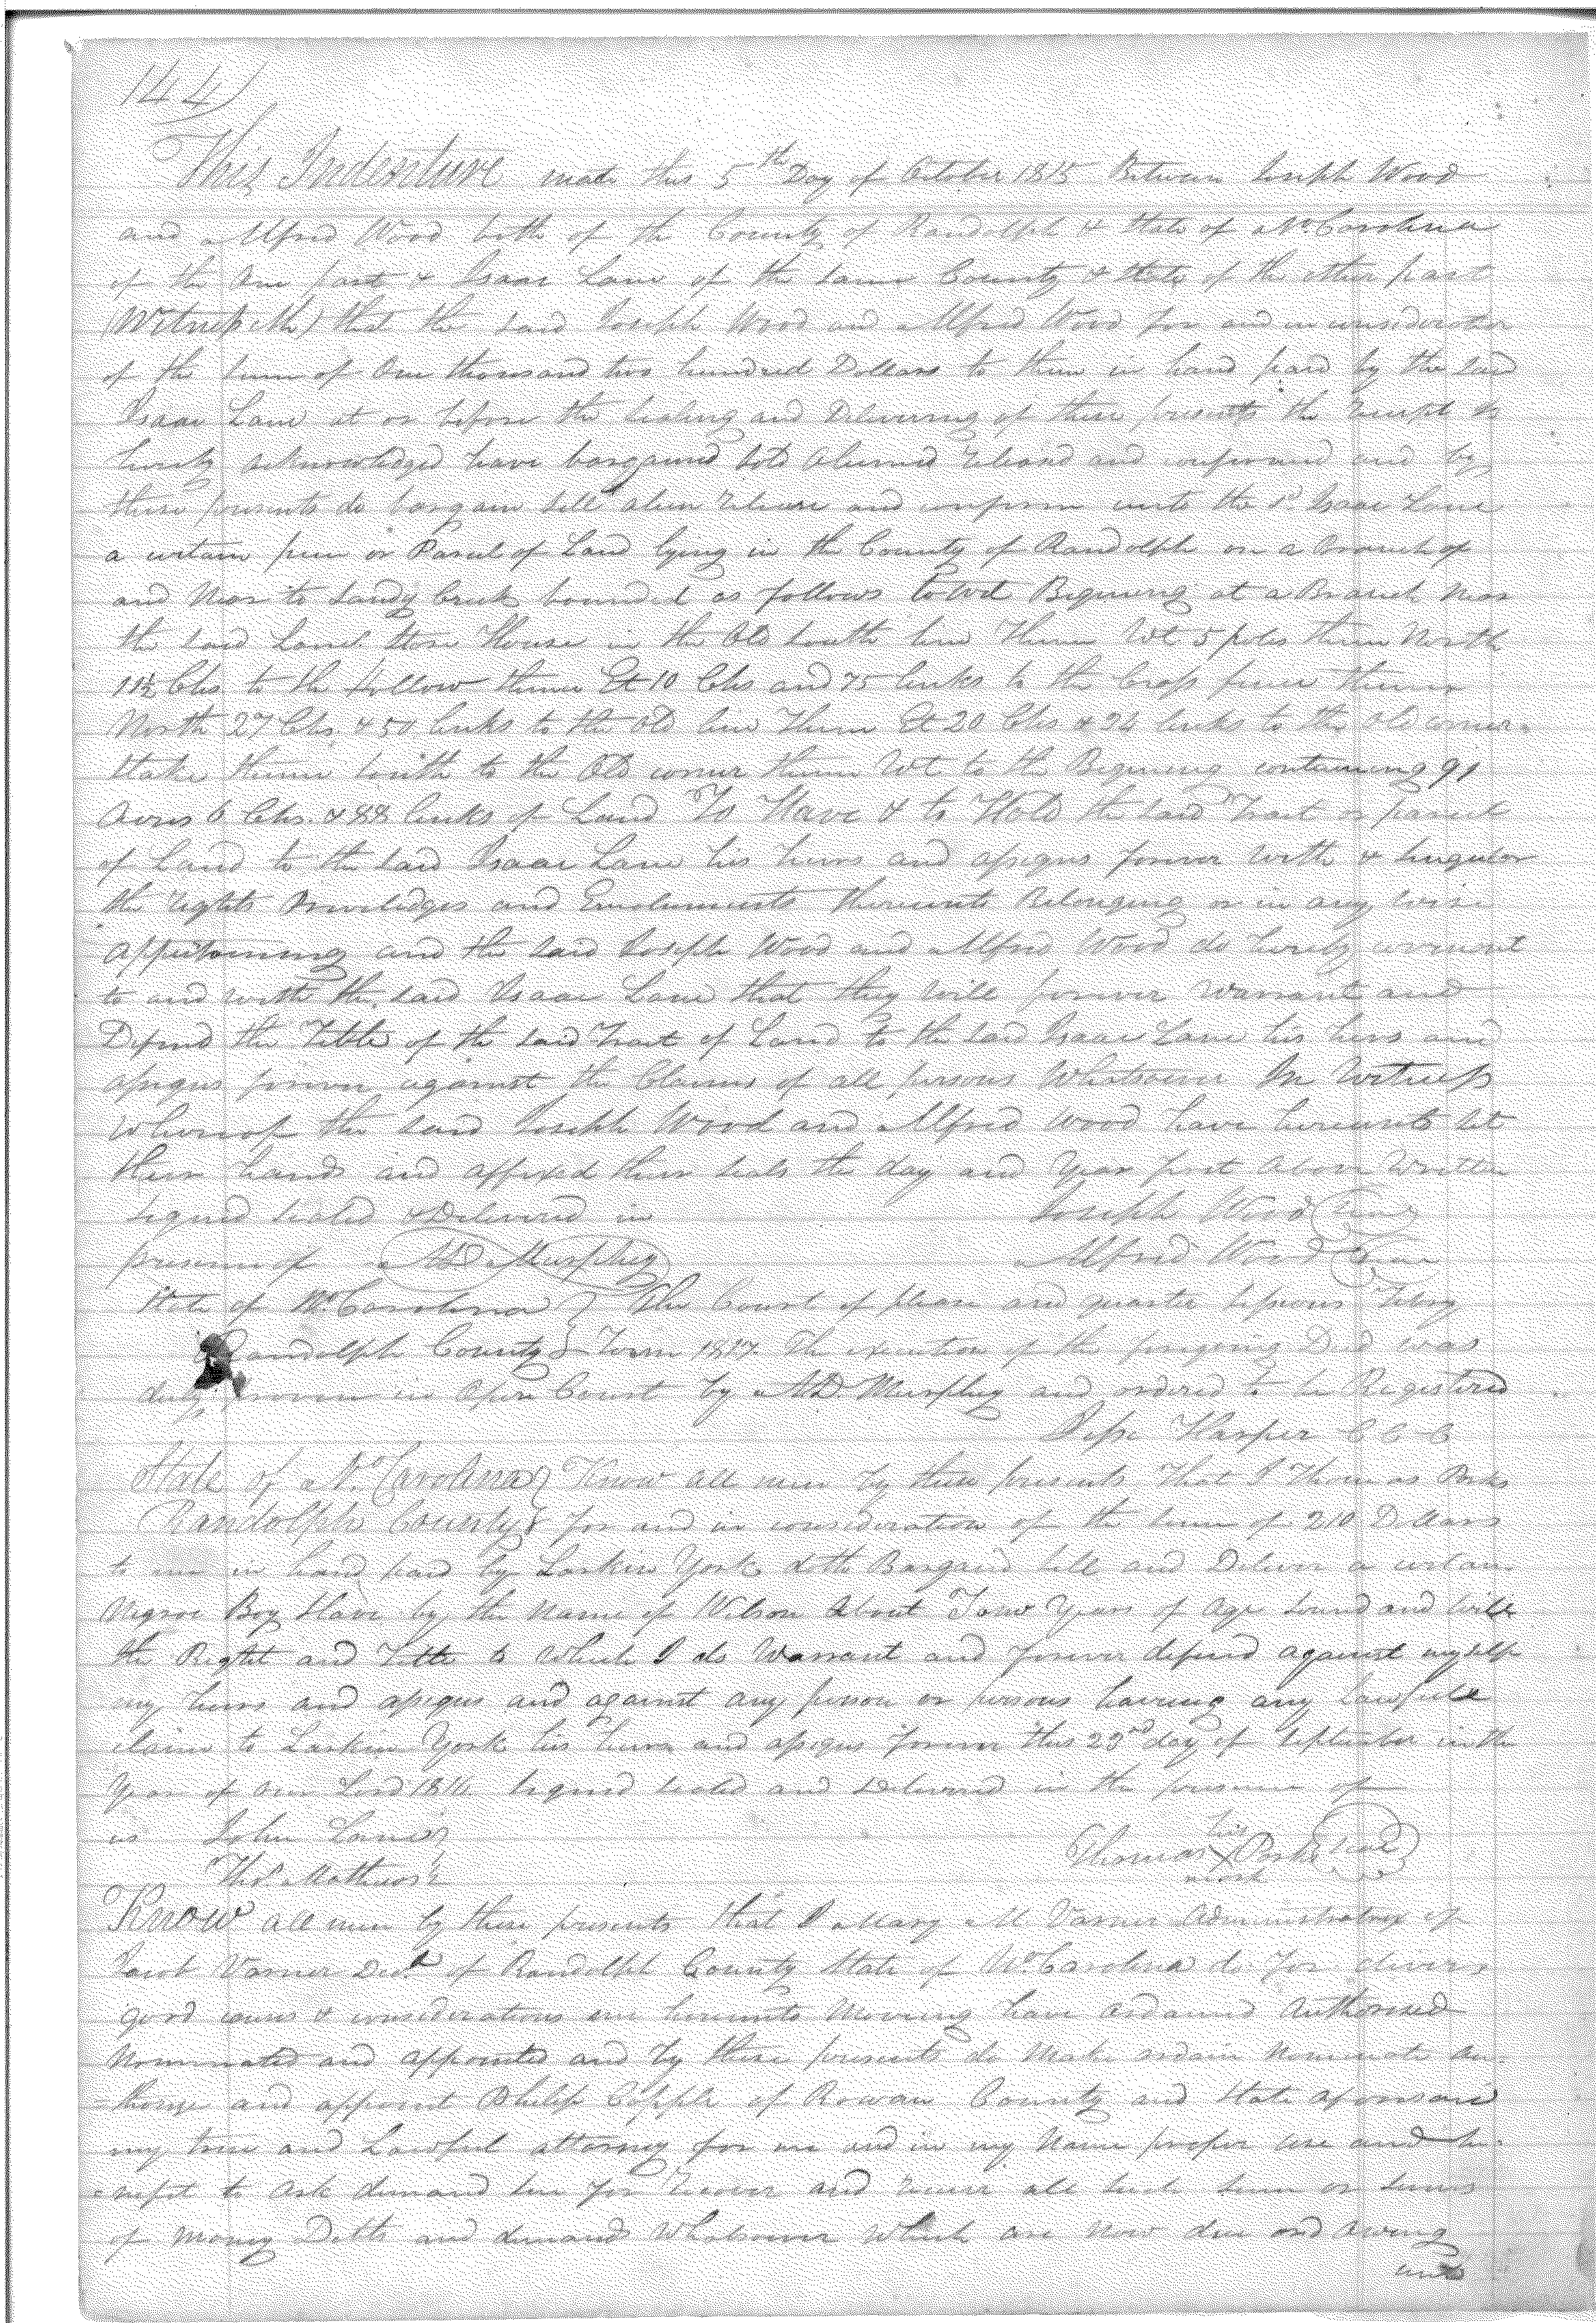 144
This Indenture made this 5th Day of October 1815 Between Joseph Wood
and Alfred Wood both of the County of Randolph & State of No. Carolina
of the One part & Isaac Lane of the Same County & State of the other part
(Witnesseth) that the Said Joseph Wood and Alfred Wood for and in consideration
of the Sum of One thousand two hundred Dollars to them in hand paid by the Said
Isaac Lane at or before the Sealing and Delivering of these presents the receipt is
hereby acknowledged have bargained Sold aliened released and confirmed and by
these presents do bargain Sell alien release and confirm unto the Sd. Isaac Lane
a certain piece or Parcel of Land lying in the County of Randolph on a Branch of
and Near to Sandy Creek bounded as follows towit Begining at a Branch near
the Said Lanes Store House in the Old South line Thence Wt 5 poles then North
11½ Chs. to the Hollow thence Et 10 Chs and 75 links to the Cross fence thence
North 27 Chs. & 50 links to the Old line Thence Et 20 Chs & 24 links to the old corner
Stake thence South to the Old corner thence Wt to the Begining containing 91
Acres 6 Chs. & 88 links of Land To Have & to Hold the Said Tract or parcel
of Land to the Said Isaac Lane his heirs and assigns forever with & Singular
the rights Priviledges and Emoluments thereunto Belonging or in any wise
appertaining and the Said Joseph Wood and Alfred Wood do hereby covenant
to and with the Said Isaac Lane that they will forever Warrant and
Defend the Title of the Said Tract of Land to the Said Isaac Lane his heirs and
assigns forever against the Claims of all persons Whatsoever In Witness
Whereof the Said Joseph Wood and Alfred Wood have hereunto Set
their hands and affixed their Seals the day and Year first Above Written
Signed Sealed & Delivered in Joseph Wood Seal
presence of AD Murphey Alfred Wood Seal
State of No. Carolina } The Court of pleas and quarter Sessions Feby
Randolph County } Term 1817 The execution of the foregoing Deed was
duly proven in Open Court by AD Murphey and ordered to be Registered
Jesse Harper C C C
State of No. Carolina } Know all men by these presents That I Thomas Parks
Randolph County } for and in consideration of the Sum of 210 Dollars
to me in hand paid by Larkin York doth Bargaind Sell and Deliver a certain
Negroe Boy Slave by the Name of Wilson About Four Years of Age Sound and
the Right and Title to Which I do Warrant and forever defend against myself
my heirs and assigns and against any person or persons having any Lawfull
claim to Larkin York his heirs and assigns forever this 23rd day of September in the
Year of Our Lord Signed Sealed and Delivered in the presence of
us John Lane }
Thos. Mathews } Thomas his X mark Parks Seal
Know all men by these presents that I Mary M. Varner Administratrix of
Jacob Varner Decd. of Randolph County State of No. Carolina do for divers
good causes & considerations me hereunto Moving have ordained Authorised
Nominated and appointed and by these presents do Make ordain Nominate Au-
=thorize and appoint Philip Copple of Rowan County and State aforesaid
my true and Lawful attorney for me and in my Name proper use and be-
=nefit to Ask demand Sue for recover and receive all Such Sum or Sums
of Money Debts and demands Whatsoever Which are now due and owing
unto